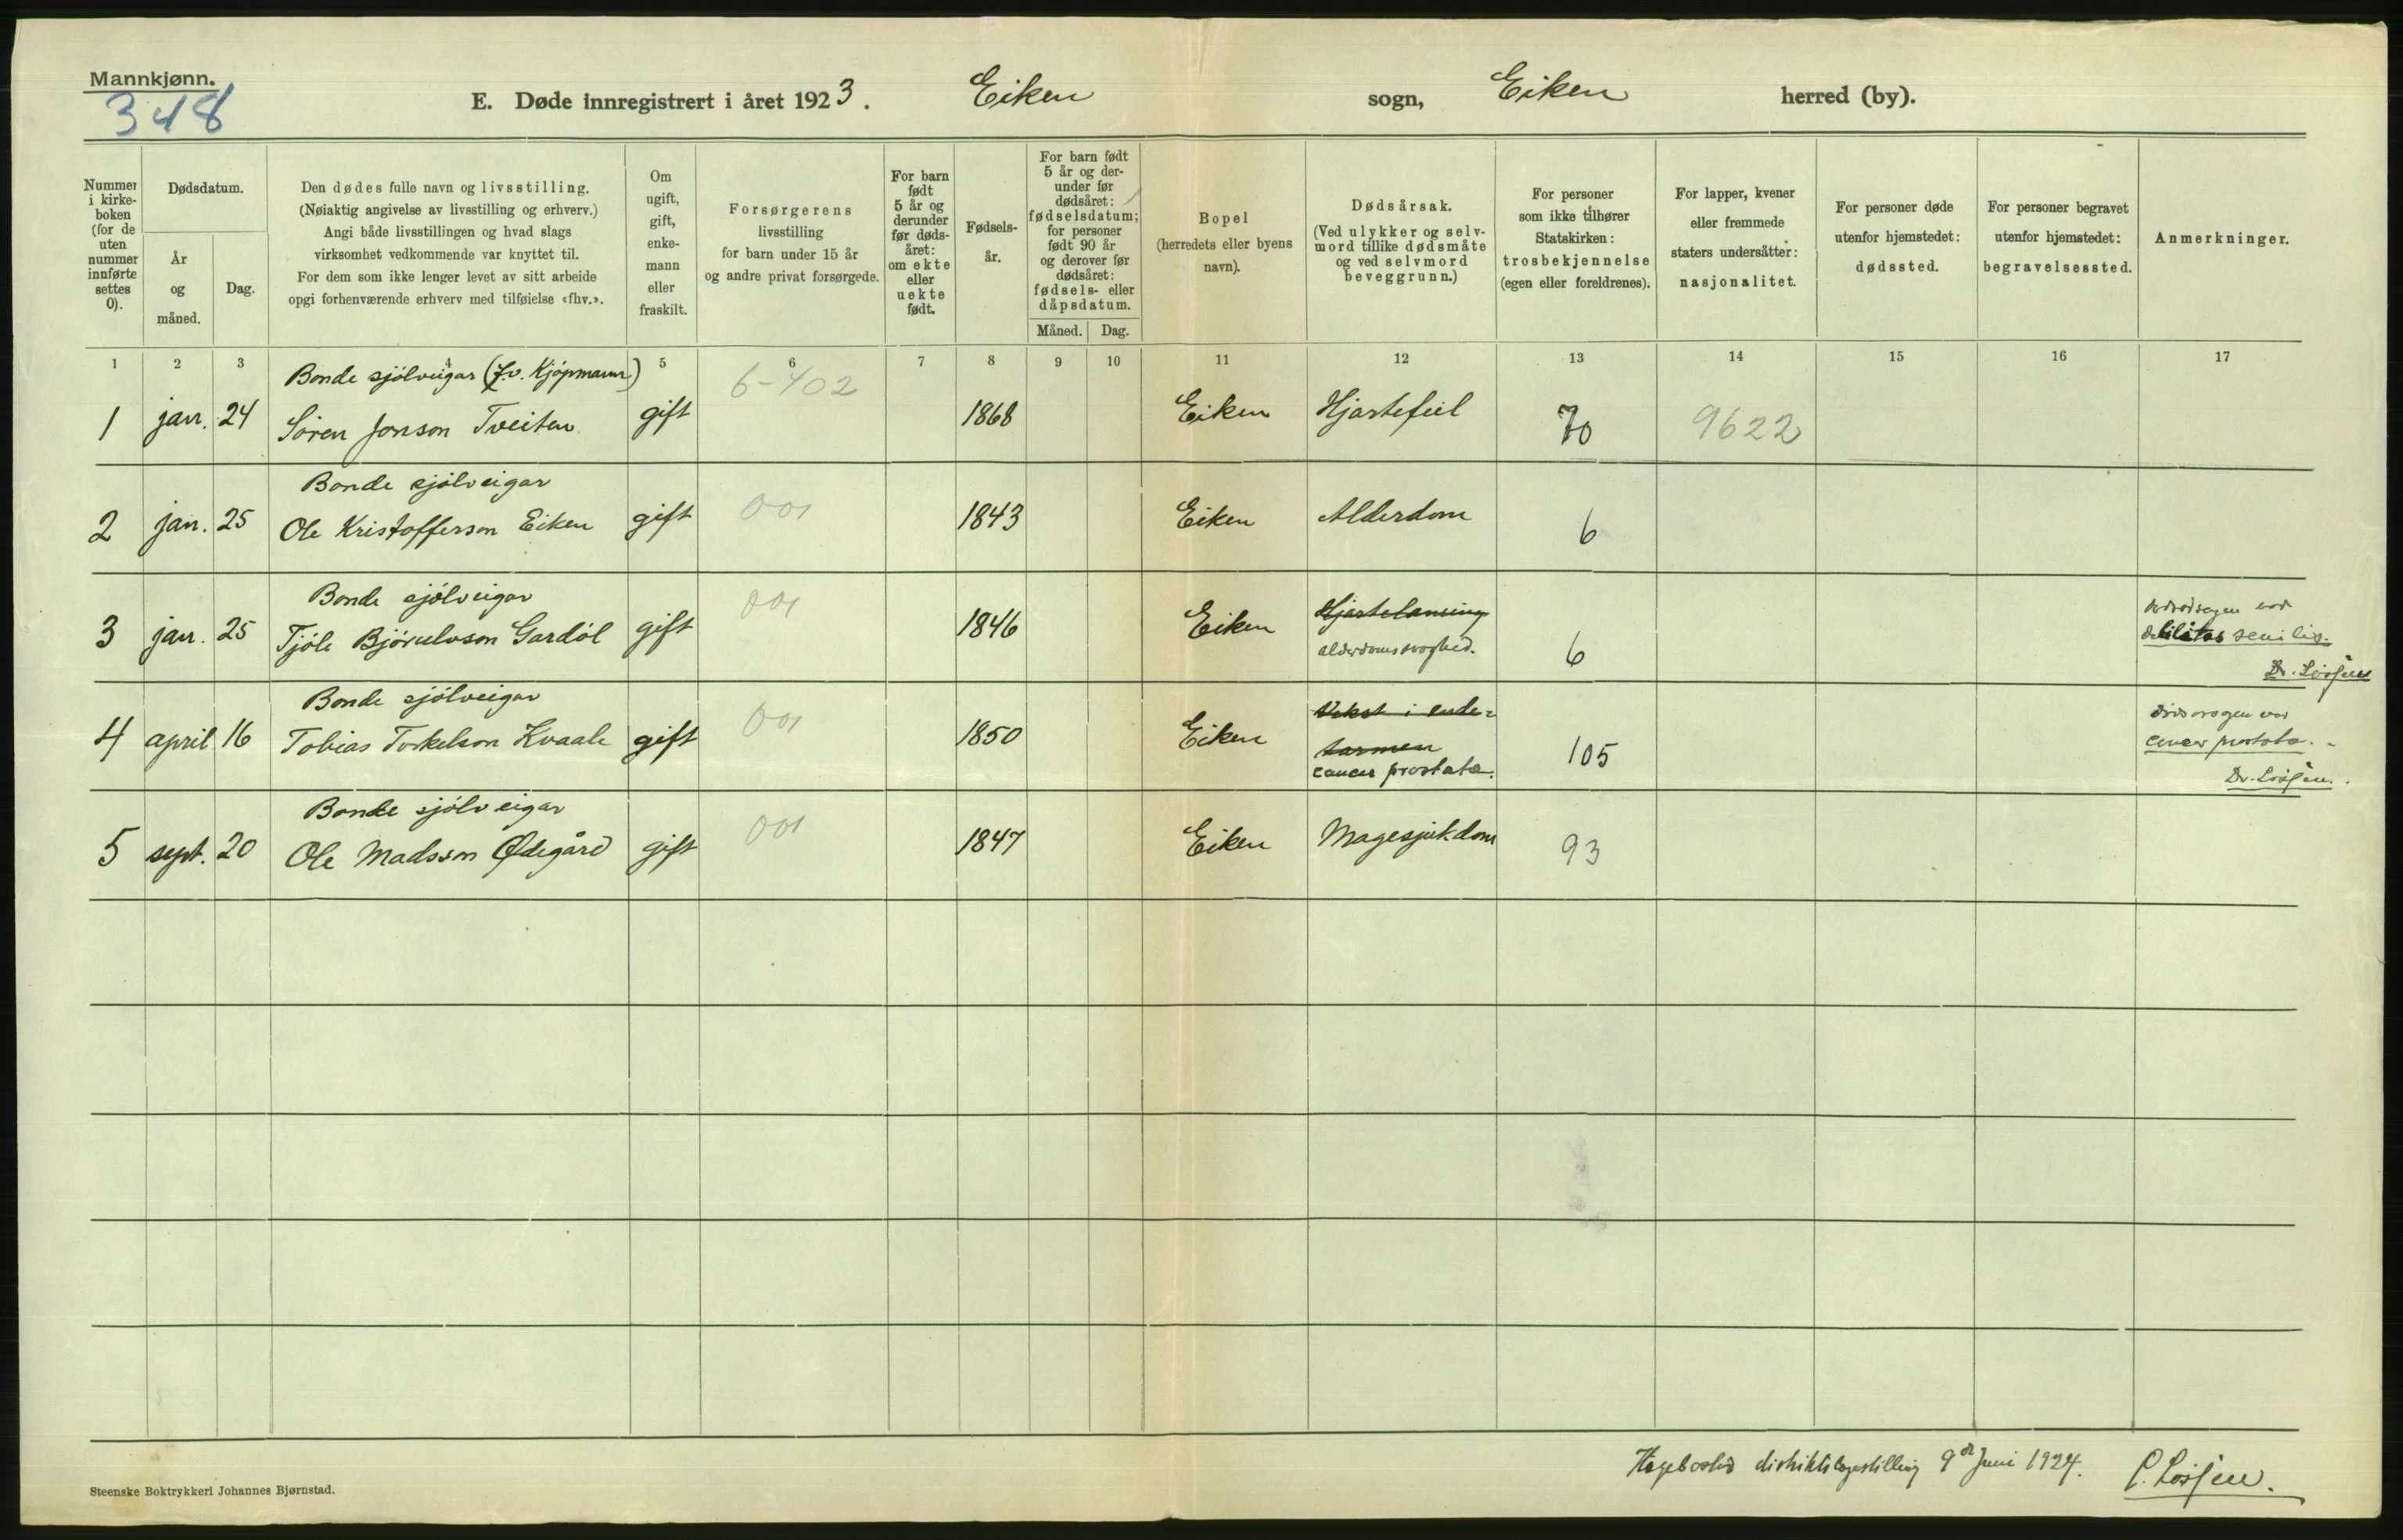 Mannkjønn.
348
E. Døde innregistrert i året 1923. Eiken sogn, Eiken herred (by).
Nummer i kirkeboken (for de uten nummer innførte settes 0).
Dødsdatum.
År og måned.
Dag.
Den dødes fulle navn og livsstilling.
(Nøiaktig angivelse av livsstilling og erhverv.)
Angi både livsstillingen og hvad slags
virksomhet vedkommende var knyttet til.
For dem som ikke lenger levet av sitt arbeide
opgi forhenværende erhverv med tilføielse «fhv.».
Om ugift, gift, enkemann eller fraskilt.
Forsørgerens
livsstilling
for barn under 15 år
og andre privat forsørgede.
For barn født 5 år og derunder før dødsåret: om ekte eller uekte født.
Fødselsår.
For barn født 5 år og derunder før dødsåret: fødselsdatum; for personer født 90 år og derover før dødsåret: fødsels- eller dåpsdatum.
Måned. Dag.
Bopel
(herredets eller byens
navn).
Dødsårsak.
(Ved ulykker og selv-
mord tillike dødsmåte
og ved selvmord
beveggrunn.)
For personer
som ikke tilhører
Statskirken:
trosbekjennelse
(egen eller foreldrenes).
For lapper, kvener
eller fremmede
staters undersåtter:
nasjonalitet.
For personer døde
utenfor hjemstedet:
dødssted.
For personer begravet
utenfor hjemstedet:
begravelsessted.
Anmerkninger.
1 2 3 4 5 6 7 8 9 10 11 12 13 14 15 16 17
Bonde sjölveigar (f.v. Kjøpmann) 6-402
1 jan. 24 Sören Jonson Tveiten gift 1868 Eiken Hjartefeil 70 9622
Bonde sjölveigar
2 jan. 25 Ole Kristofferson Eiken gift 001 1843 Eiken Alderdom 6
Bonde sjölveigar
3 jan. 25 Tjöle Bjórulvson Gardöl gift 001 1846 Eiken Hjartelamning
alderdomssvaghed. 6
debilitas senilis.
Dr. Losjen
Bonde sjölveigar
4 april 16 Tobias Torkelson Kvaale gift 001 1850 Eiken Vekst i ende-
tarmen
cancer prostatae. 105
cancer prostatae.
Dr. Losjen.
Bonde sjölveigar
5 sept. 20 Ole Madsson Ødegård gift 001 1847 Eiken Magesjukdom 93
Hægebostad distriktslægestilling 9de Juni 1924. C. Losjen.
Steenske Boktrykkeri Johannes Bjørnstad.